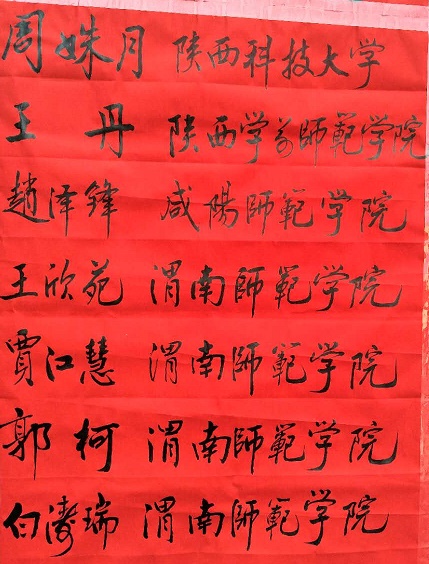 周姝月 陕西科技大学
王丹 陕西学前師範学院
趙泽锋 咸陽師範学院
王欣苑 渭南師範学院
賈江慧 渭南師範学院
郭柯 渭南師範学院
白濤瑞 渭南師範学院